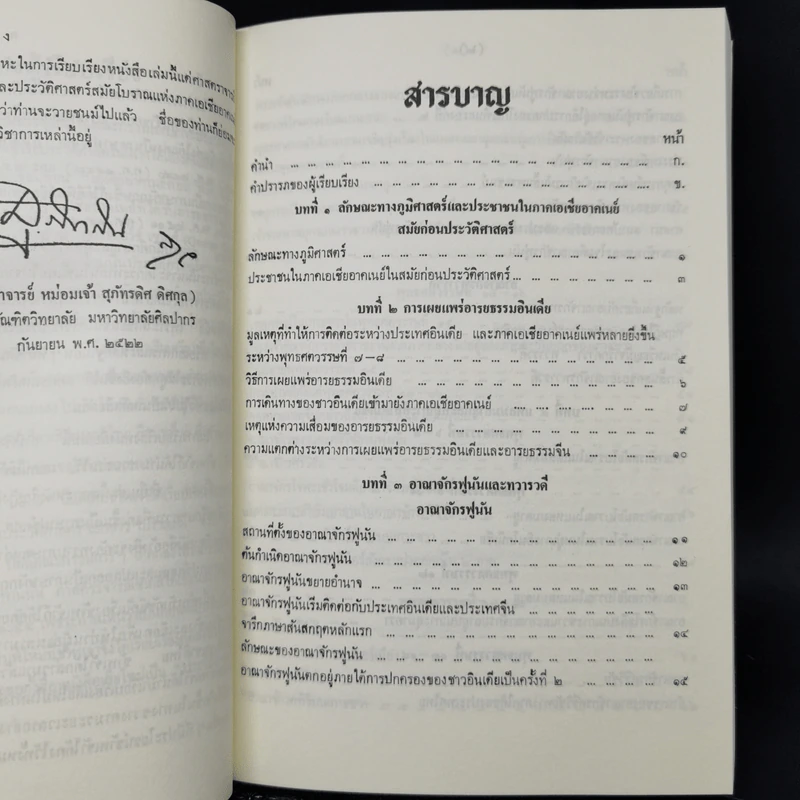 ง
หะในการเรียบเรียงหนังสือเล่มนี้แด่ศาสตราจารย์
และประวัติศาสตร์สมัยโบราณแห่งภาคเอเชียอาคเนย์
ว่าท่านจะวายชนม์ไปแล้ว ชื่อของท่านก็ย่อม
วิชาการเหล่านี้อยู่
อาจารย์ หม่อมเจ้า สุภัทรดิศ ดิศกุล)
บัณฑิตวิทยาลัย มหาวิทยาลัยศิลปากร
กันยายน พ.ศ. ๒๕๒๒
สารบาญ
หน้า
คำนำ ... ก.
คำปรารภของผู้เรียบเรียง ... ข.
บทที่ ๑ ลักษณะทางภูมิศาสตร์และประชาชนในภาคเอเชียอาคเนย์
สมัยก่อนประวัติศาสตร์
ลักษณะทางภูมิศาสตร์ ... ๑
ประชาชนในภาคเอเชียอาคเนย์ในสมัยก่อนประวัติศาสตร์ ... ๓
บทที่ ๒ การเผยแพร่อารยธรรมอินเดีย
มูลเหตุที่ทำให้การติดต่อระหว่างประเทศอินเดีย และภาคเอเชียอาคเนย์แพร่หลายยิ่งขึ้น
ระหว่างพุทธศตวรรษที่ ๗–๘ ... ๕
วิธีการเผยแพร่อารยธรรมอินเดีย ... ๖
การเดินทางของชาวอินเดียเข้ามายังภาคเอเชียอาคเนย์ ... ๗
เหตุแห่งความเสื่อมของอารยธรรมอินเดีย ... ๙
ความแตกต่างระหว่างการเผยแพร่อารยธรรมอินเดียและอารยธรรมจีน ... ๑๐
บทที่ ๓ อาณาจักรฟูนันและทวารวดี
อาณาจักรฟูนัน
สถานที่ตั้งของอาณาจักรฟูนัน ... ๑๑
ต้นกำเนิดอาณาจักรฟูนัน ... ๑๒
อาณาจักรฟูนันขยายอำนาจ ... ๑๓
อาณาจักรฟูนันเริ่มติดต่อกับประเทศอินเดียและประเทศจีน ...
จารึกภาษาสันสกฤตหลักแรก ... ๑๔
ลักษณะของอาณาจักรฟูนัน ...
อาณาจักรฟูนันตกอยู่ภายใต้การปกครองของชาวอินเดียเป็นครั้งที่ ๒ ... ๑๕